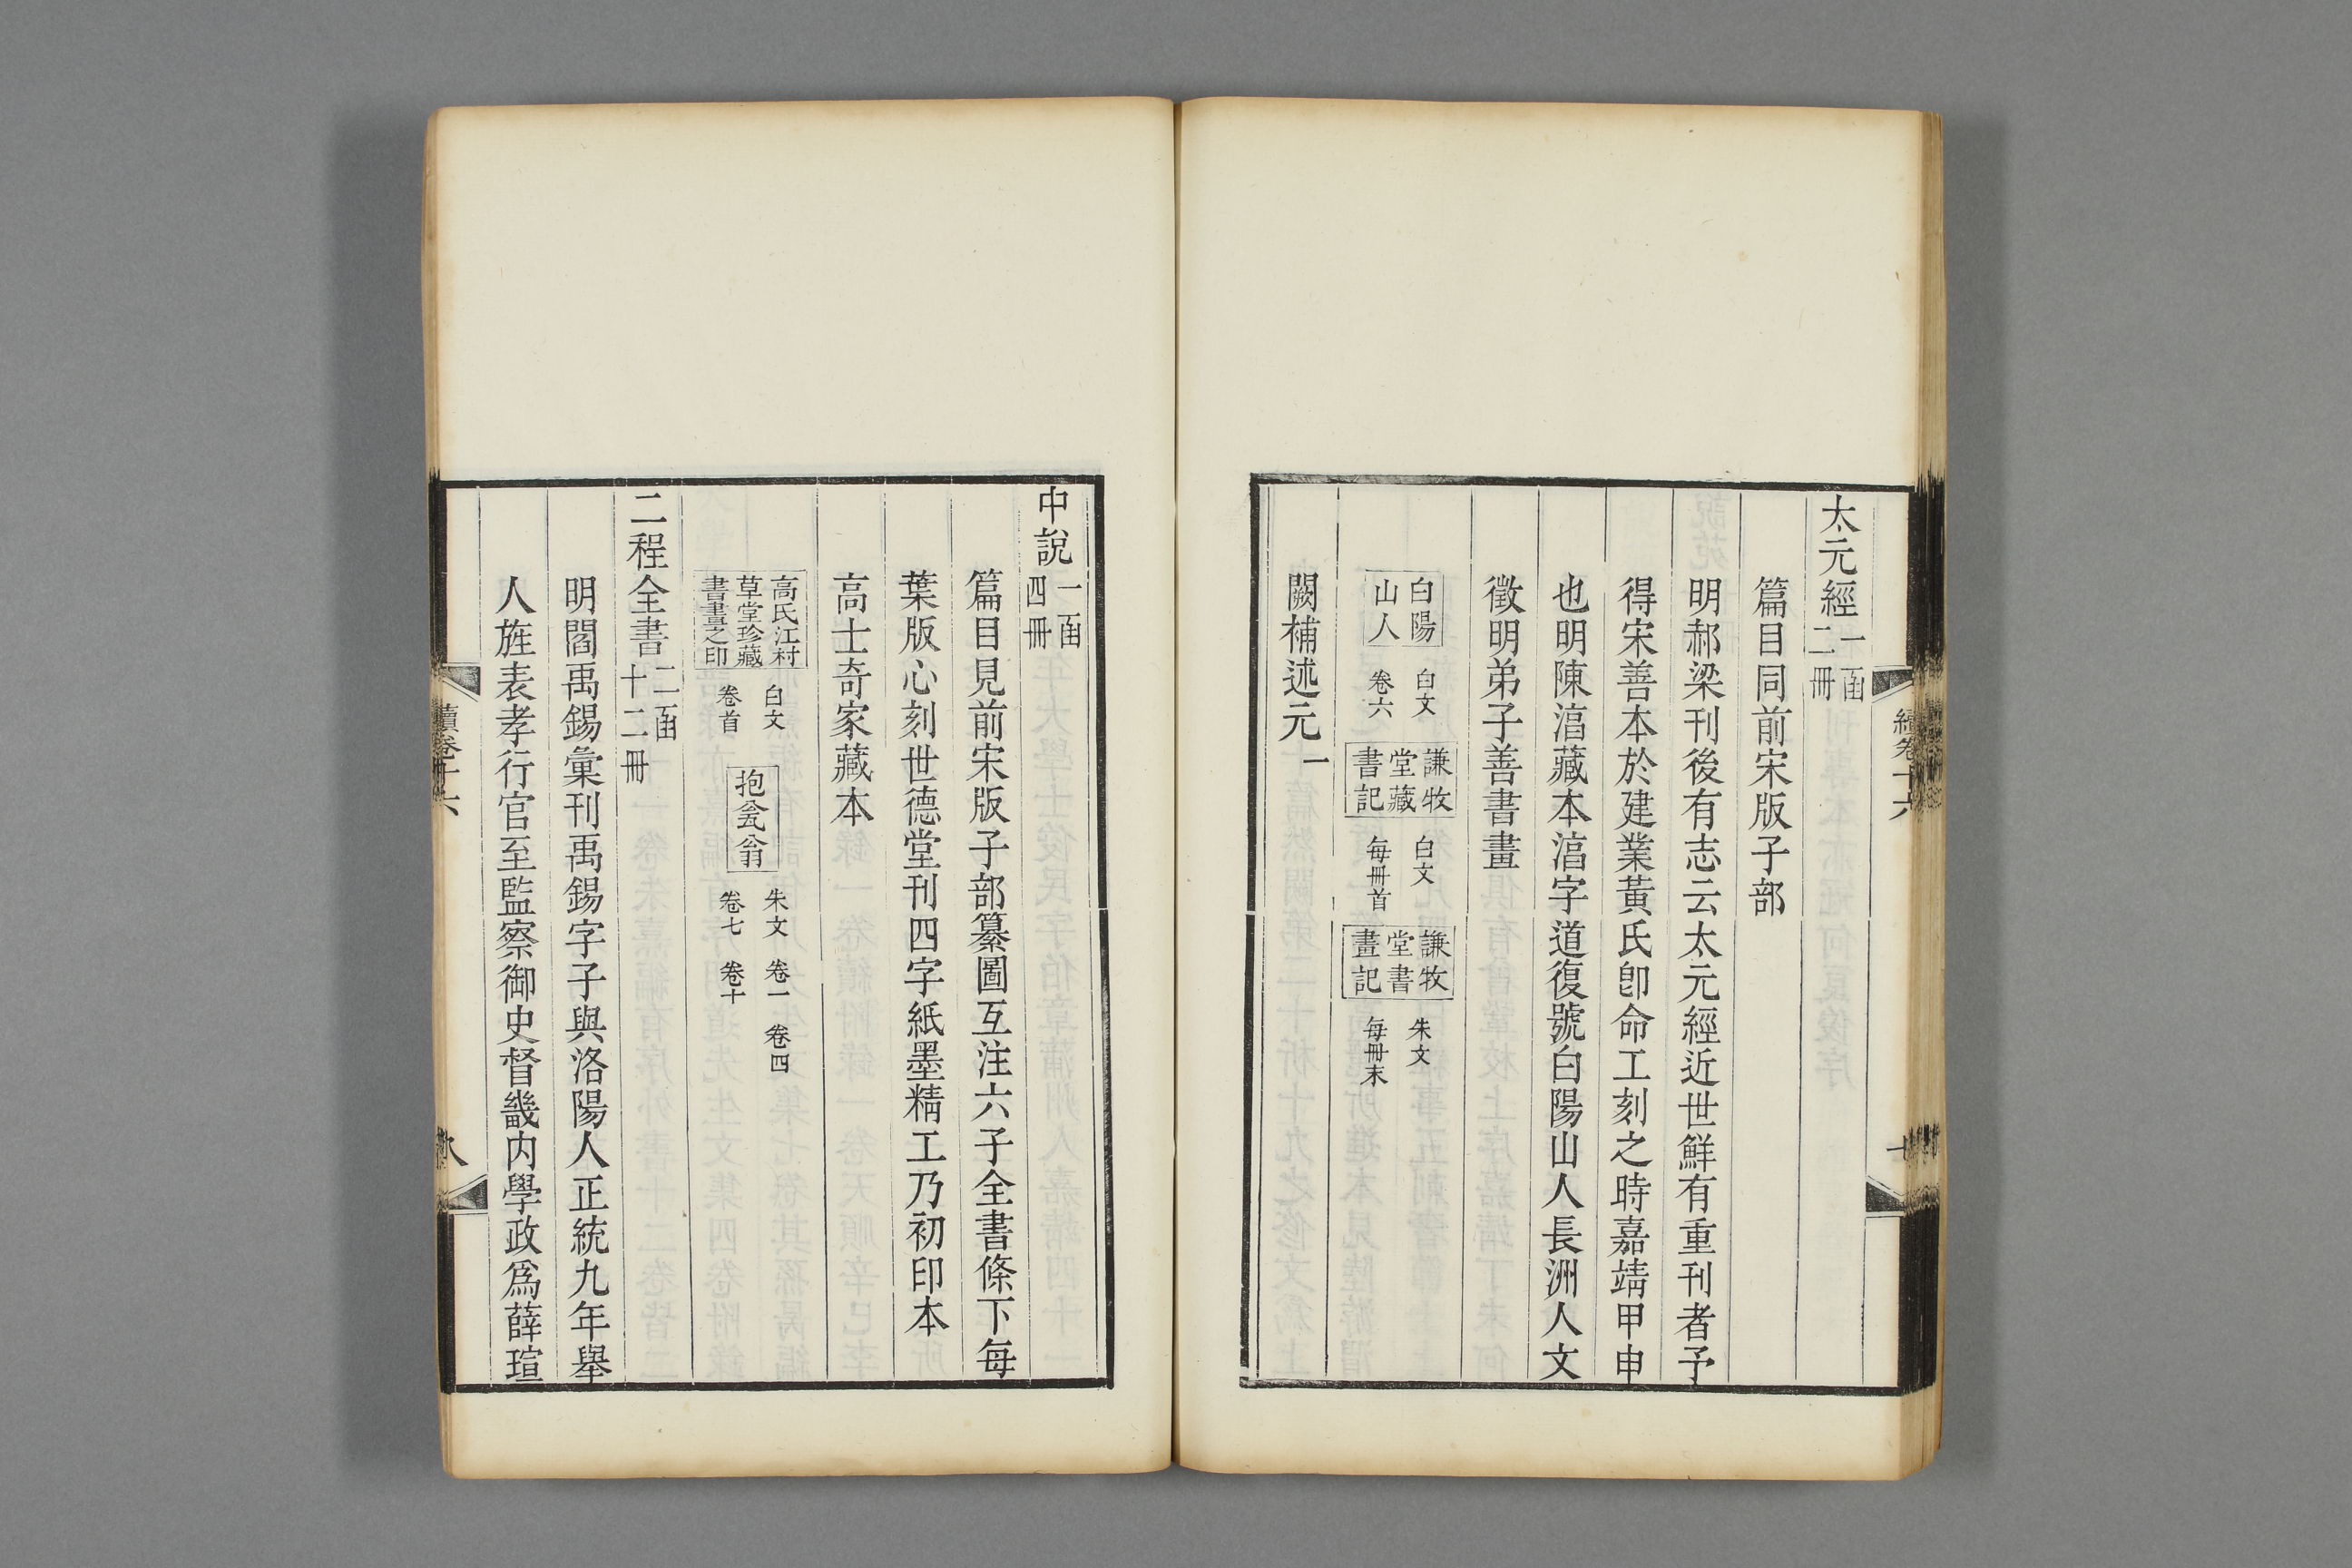 太元經一函二冊
篇目同前宋版子部
明郝梁刊後有志云太元經近世鮮有重刊者予
得宋善本於建業黃氏卽命工刻之時嘉靖甲申
也明陳淳藏本淳字道復號白陽山人長洲人文
徵明弟子善書畫
白陽山人 白文 卷六 謙牧堂藏書記 白文 每冊首 謙牧堂書畫記 朱文 每冊末
闕補述元一
續卷十六
七
中說一函四冊
篇目見前宋版子部纂圖互注六子全書條下每
葉版心刻世德堂刊四字紙墨精工乃初印本
高士奇家藏本
高氏江村草堂珍藏書畫之印 白文 卷首 抱瓮翁 朱文 卷一 卷四 卷七 卷十
二程全書二函十二冊
明閻禹錫彙刊禹錫字子與洛陽人正統九年舉
人旌表孝行官至監察御史督畿内學政爲薛瑄
續卷十六
八